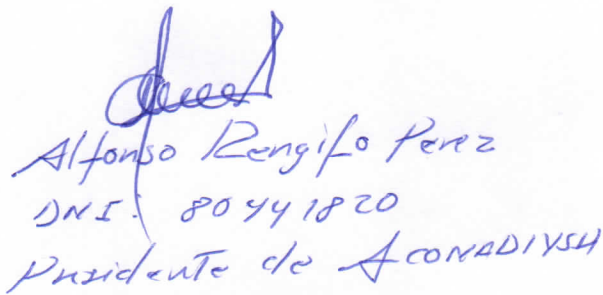 Alfonso Rengifo Perez
DNI: 80441820
Presidente de ACONADIYSH